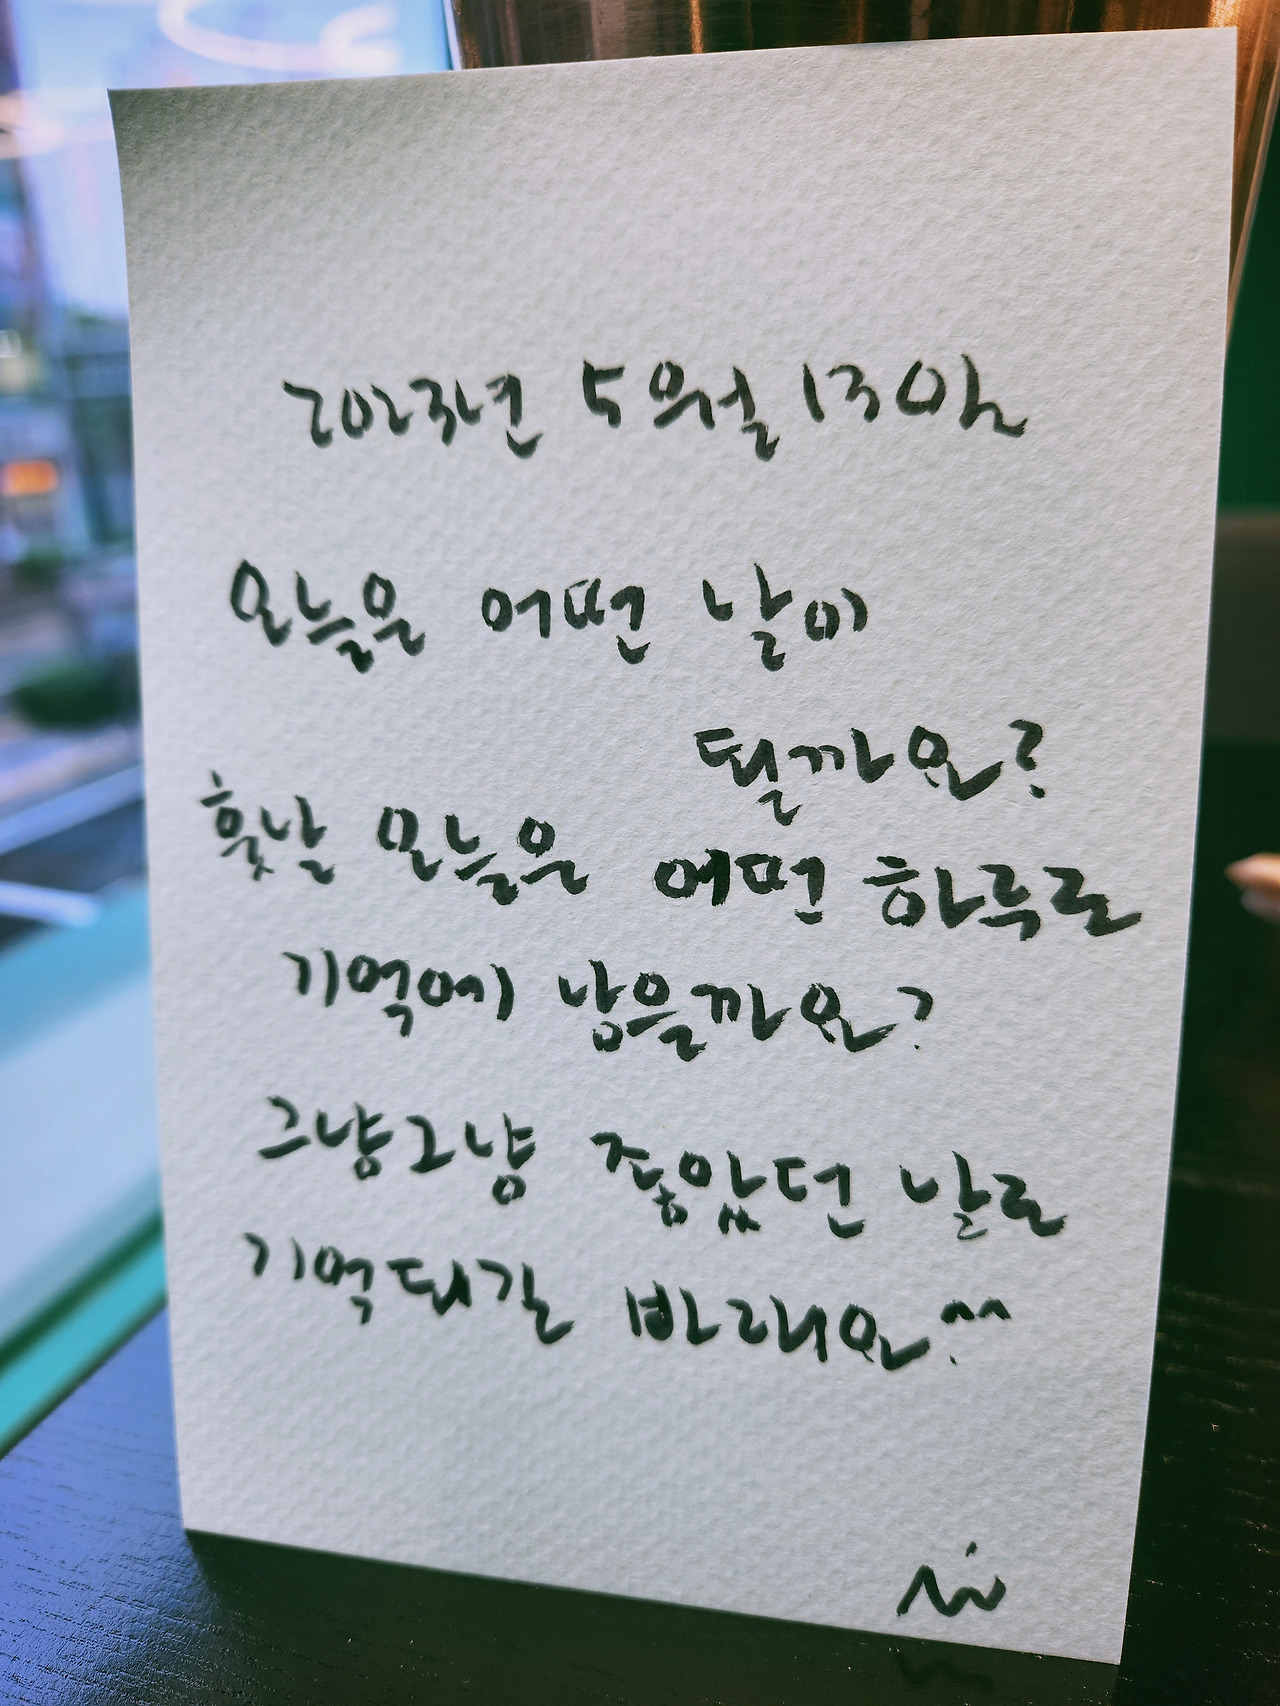 2023년 5월 13일
오늘은 어떤 날이
될까요?
훗날 오늘은 어떤 하루로
기억에 남을까요?
그냥그냥 좋았던 날로
기억되길 바래요^^